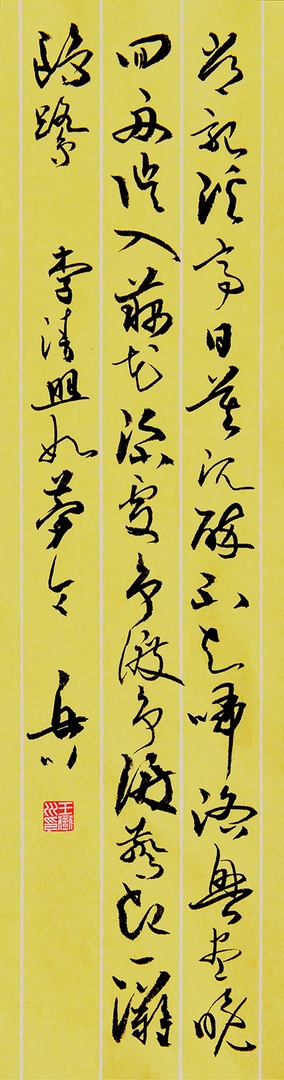 常記溪亭日暮沉醉不知歸路興盡晚
回舟誤入藕花深處爭渡爭渡驚起一灘
鷗鷺 李清照如夢令